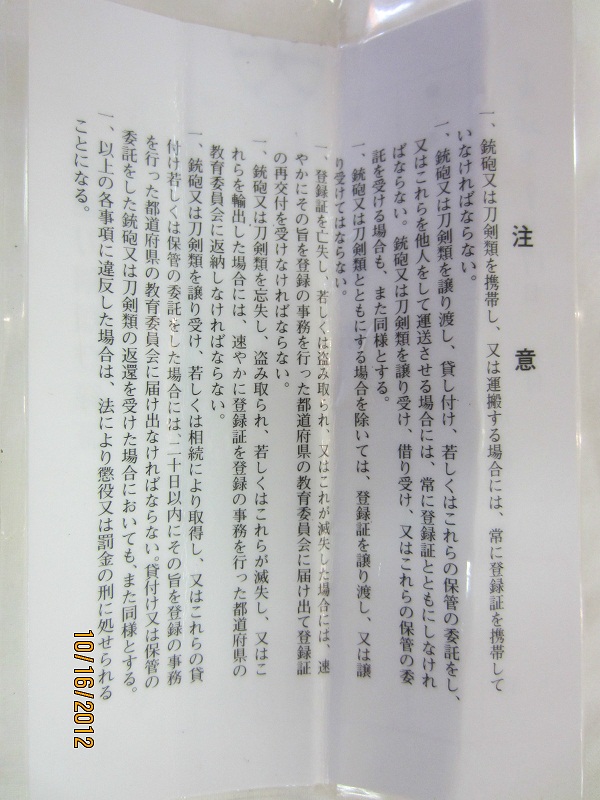 注意
一、銃砲又は刀剣類を携帯し、又は運搬する場合には、常に登録証を携帯して
いなければならない。
一、銃砲又は刀剣類を譲り渡し、貸し付け、若しくはこれらの保管の委託をし、
又はこれらを他人をして運送させる場合には、常に登録証とともにしなけれ
ばならない。銃砲又は刀剣類を譲り受け、借り受け、又はこれらの保管の委
託を受ける場合も、また同様とする。
一、銃砲又は刀剣類とともにする場合を除いては、登録証を譲り渡し、又は譲
り受けてはならない。
一、登録証を亡失し、若しくは盗み取られ、又はこれが滅失した場合には、速
やかにその旨を登録の事務を行った都道府県の教育委員会に届け出て登録証
の再交付を受けなければならない。
一、銃砲又は刀剣類を忘失し、盗み取られ、若しくはこれらが滅失し、又はこ
れらを輸出した場合には、速やかに登録証を登録の事務を行った都道府県の
教育委員会に返納しなければならない。
一、銃砲又は刀剣類を譲り受け、若しくは相続により取得し、又はこれらの貸
付け若しくは保管の委託をした場合には、二十日以内にその旨を登録の事務
を行った都道府県の教育委員会に届け出なければならない。貸付け又は保管の
委託をした銃砲又は刀剣類の返還を受けた場合においても、また同様とする。
一、以上の各事項に違反した場合は、法により懲役又は罰金の刑に処せられる
ことになる。
10/16/2012